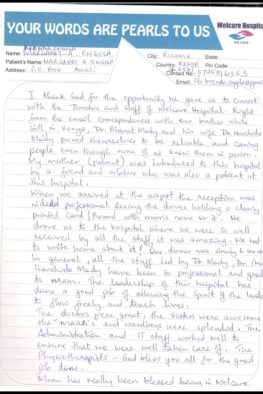 YOUR WORDS ARE PEARLS TO US
Welcare Hospital
WE CARE
Name: MARGARET A. ONGOLA
City: KISUMU State:
Patient's Name: MARGARET A. ONGOLA
Country: KENYA Pin Code:
Address: P.O. BOX
Contact No.:
Email:
I thank God for the opportunity he gave us to connect
with the Directors and staff of Welcare Hospital. Right
from the email correspondences with our brother while
still in Kenya, Dr. Bharat Mody and his wife Dr. Harshide
Mody proved themselves to be reliable and caring
people even though none of us knew them in person.
My mother (patient) was introduced to this hospital
by a friend and relative who was also a patient at
this hospital.
When we arrived at the airport the reception was
indeed professional seeing the driver holding a clearly
printed Card Board with mum's name on it. He
drove us to the hospital where we were so well
received by all the staff, it was amazing. We had
to write home about it! Our dinner was already in
In general, all the staff led by Dr. Mody, Dr. (Mrs)
Harshide Mody have been so professional and good
to mum. The leadership of this hospital has
done a good job of allowing the spirit of the leader
to flow freely and touch lives.
The doctors were great, the sisters were awesome
the "maasi's and wardboys were splendid. The
Administration and IT staff worked well to
ensure that we were well taken care of. The
Physiotherapists – God bless you all for the good
job done.
Mum has really been blessed being in Welcare